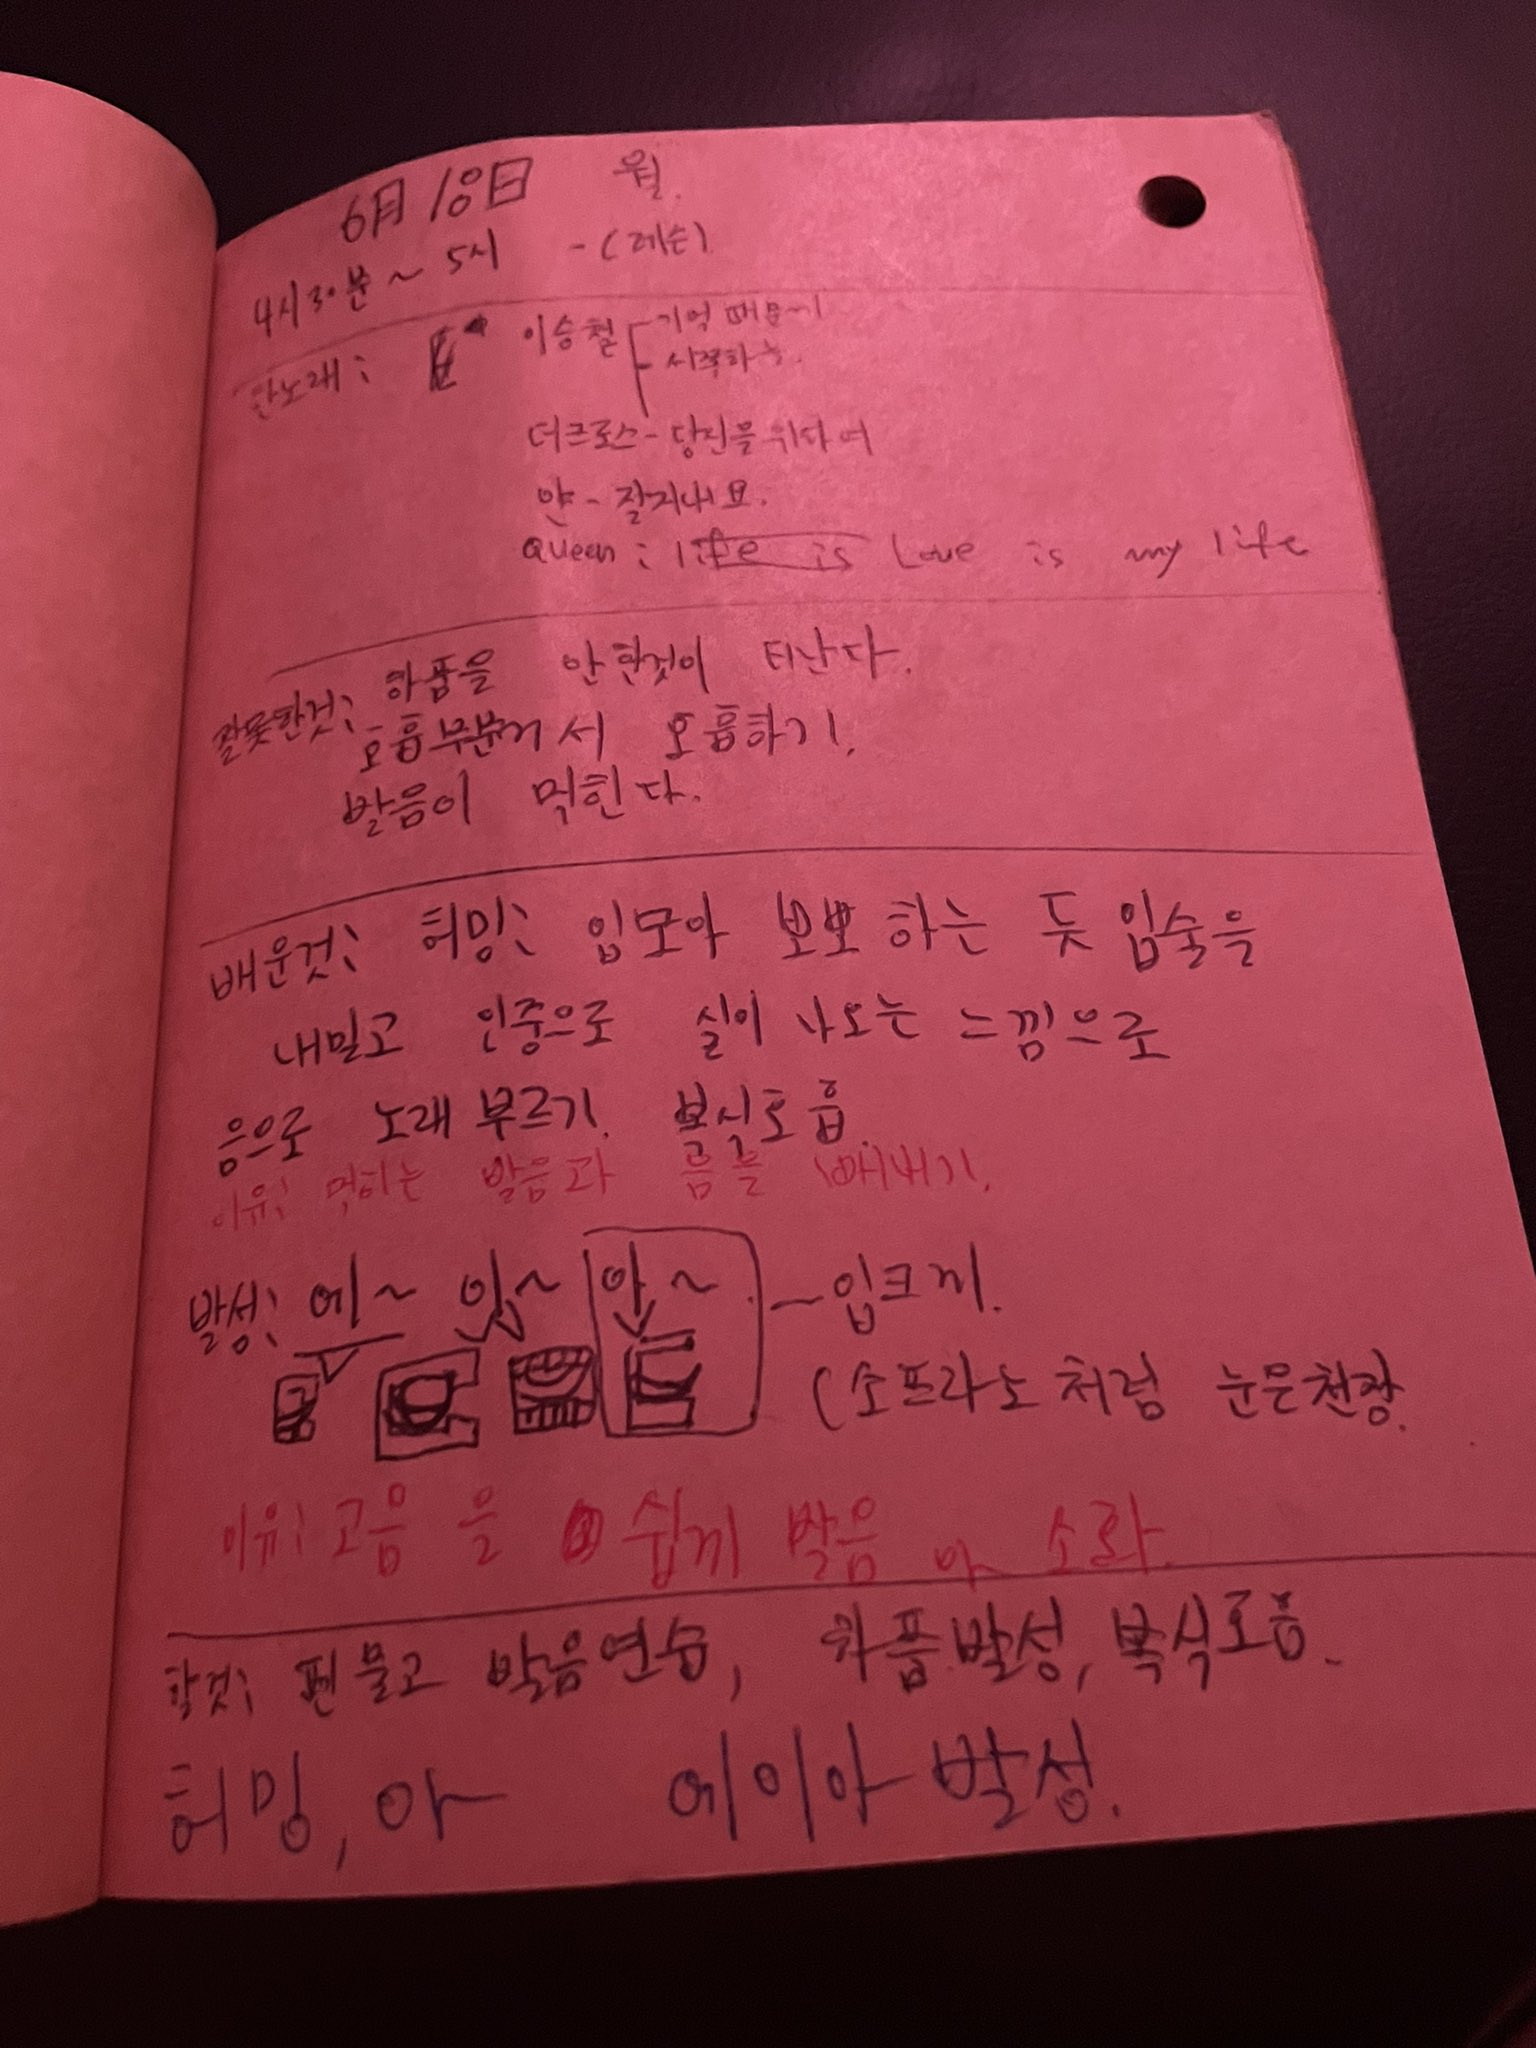 6月 18日 월.
4시 30분 ~ 5시 - (레슨)
한노래: 이승철 기억 때문에
시작하는
더크로스 - 당진을 위하여
얀 - 잘지내요.
Queen : life is Love is my life
잘못한것: 하품을 안한것이 티난다.
호흡부분에서 호흡하기.
발음이 먹힌다.
배운것: 허밍: 입모아 뽀뽀 하는 듯 입술을
내밀고 인중으로 실이 나오는 느낌으로
음으로 노래 부르기. 복식호흡.
이유: 먹히는 발음과 음을 빼내기.
발성: 에~ 이~ 아~ - 입크게.
(소프라노 처럼 눈은천장.
이유: 고음을 쉽게 발음 소화.
할것: 펜물고 발음연습, 하품발성, 복식호흡.
허밍, 아 에이아 발성.